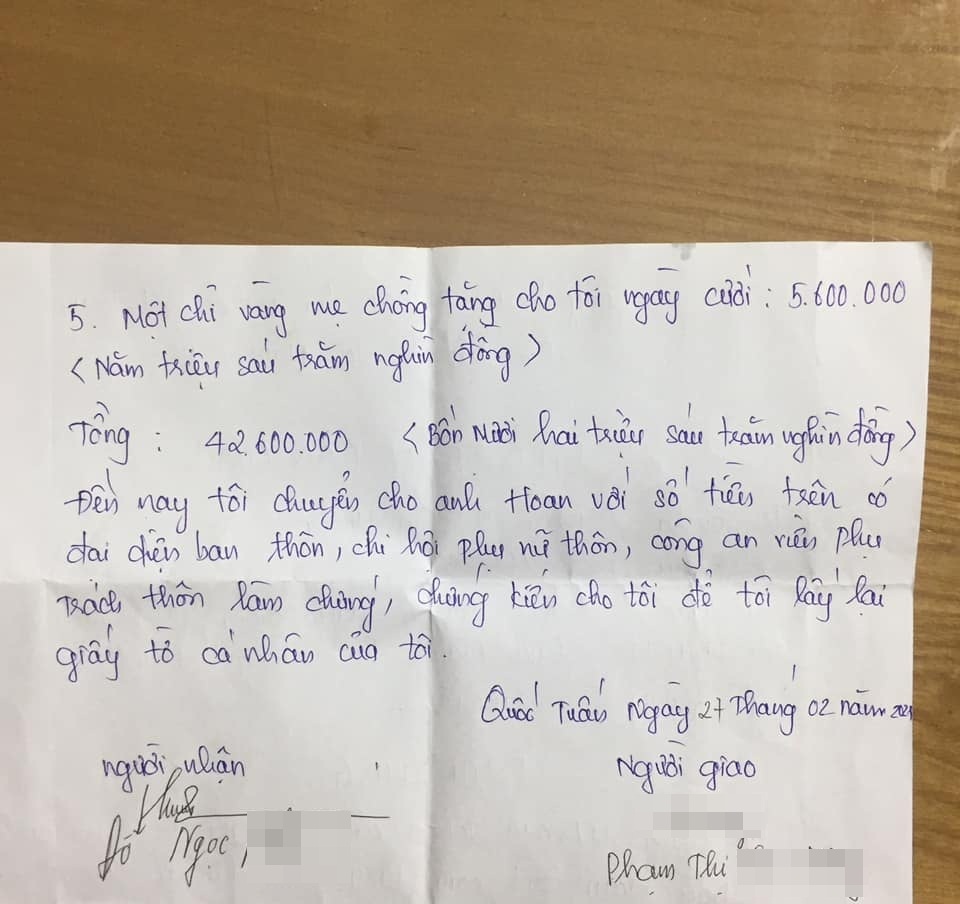 5. Một chỉ vàng mẹ chồng tặng cho tôi ngày cưới : 5.600.000
< Năm triệu sáu trăm nghìn đồng >
Tổng : 42.600.000 < Bốn Mươi hai triệu sáu trăm nghìn đồng >
Đến nay tôi chuyển cho anh Hoan với số tiền trên có
đại diện ban thôn, chi hội phụ nữ thôn, công an viên phụ
trách thôn làm chứng, chứng kiến cho tôi để tôi lấy lại
giấy tờ cá nhân của tôi.
Quốc Tuấn Ngày 27 Tháng 02 năm
người nhận
Người giao
Đỗ Ngọc,
Phạm Thị